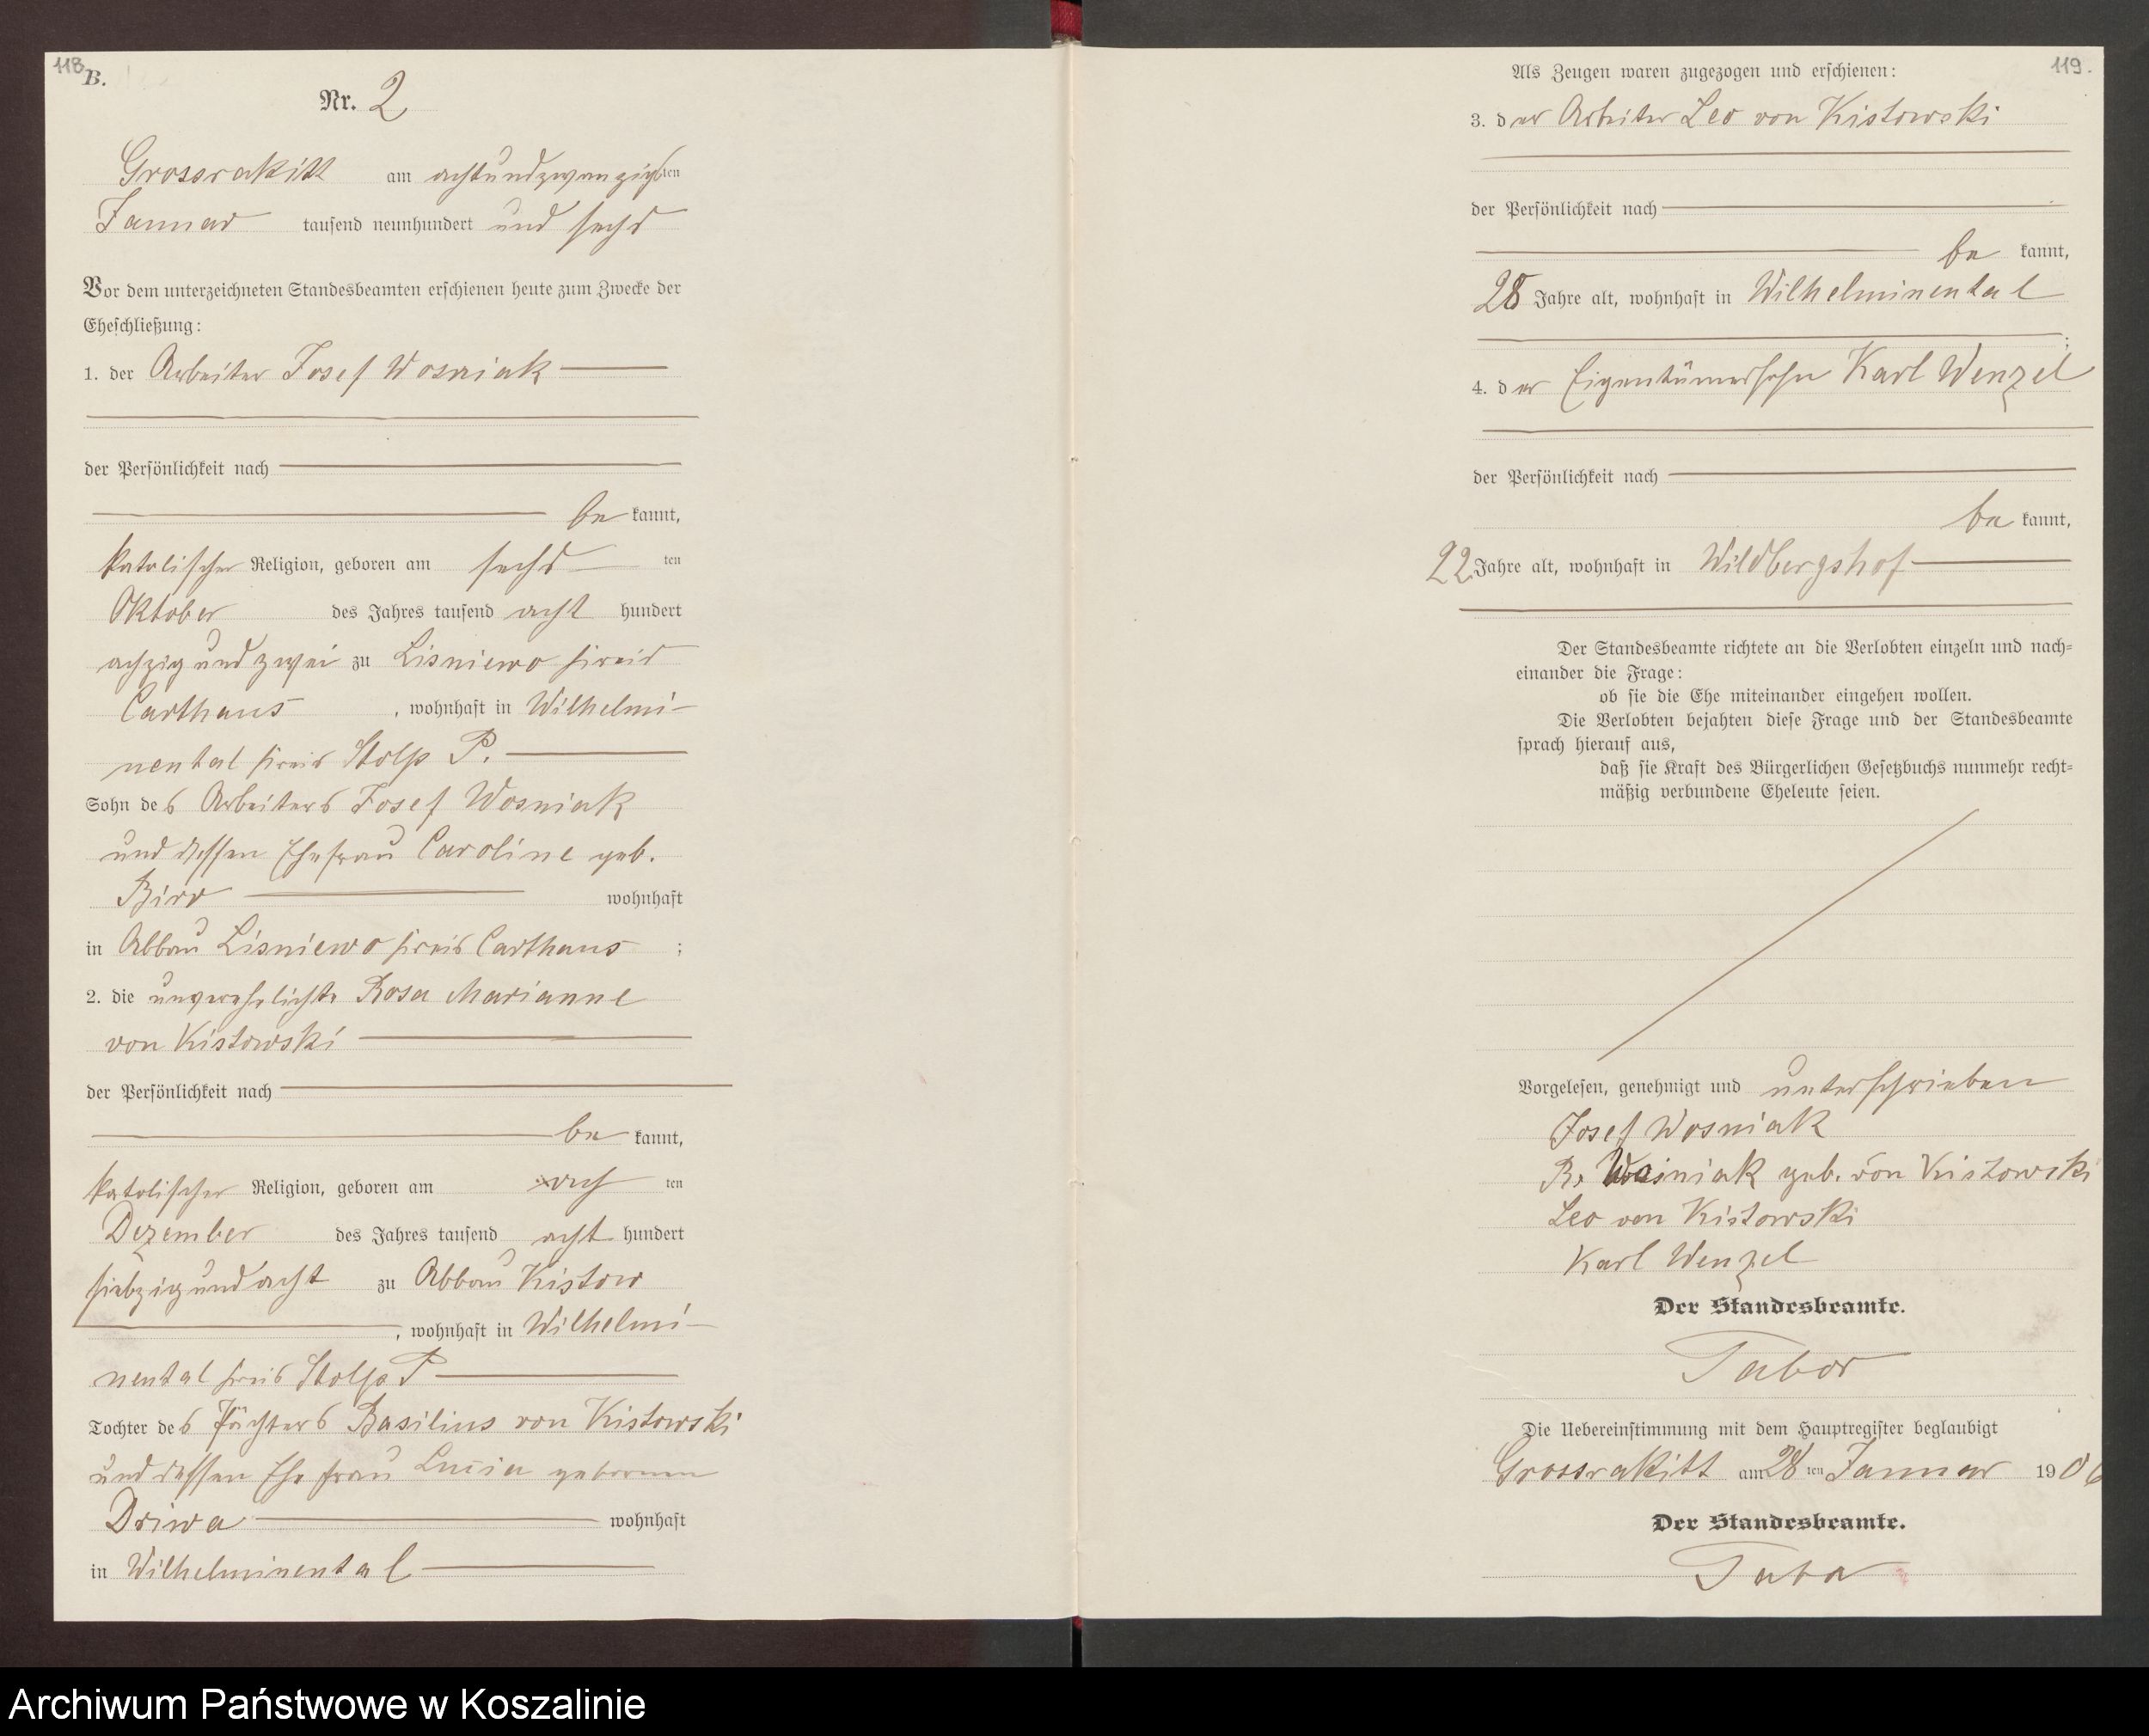 118
B.
Nr. 2
Grossrakitt am achtundzwanzigsten
Januar tausend neunhundert und sechs
Vor dem unterzeichneten Standesbeamten erschienen heute zum Zwecke der
Eheschließung:
1. der Arbeiter Josef Wosniak
der Persönlichkeit nach
be kannt,
katolischer Religion, geboren am sechs ten
Oktober des Jahres tausend acht hundert
achzig und zwei zu Lisniewo Kreis
Carthaus , wohnhaft in Wilhelmi-
nental Kreis Stolp P.
Sohn des Arbeiters Josef Wosniak
und dessen Ehefrau Caroline geb.
Birr wohnhaft
in Abbau Lisniewo Kreis Carthaus ;
2. die unverehelichte Rosa Marianne
von Kistowski
der Persönlichkeit nach
be kannt,
katolischer Religion, geboren am ten
Dezember des Jahres tausend acht hundert
siebzig und acht zu Abbau Kistow
, wohnhaft in Wilhelmi-
nental Kreis Stolp P
Tochter des Pächters Basilius von Kistowski
und dessen Ehefrau Lucia geborenen
Driwa wohnhaft
in Wilhelminental
119.
Als Zeugen waren zugezogen und erschienen:
3. der Arbeiter Leo von Kistowski
der Persönlichkeit nach
be kannt,
28 Jahre alt, wohnhaft in Wilhelminental
;
4. der Eigentümersohn Karl Wenzel
der Persönlichkeit nach
be kannt,
22 Jahre alt, wohnhaft in Wildbergshof
Der Standesbeamte richtete an die Verlobten einzeln und nach-
einander die Frage:
ob sie die Ehe miteinander eingehen wollen.
Die Verlobten bejahten diese Frage und der Standesbeamte
sprach hierauf aus,
daß sie Kraft des Bürgerlichen Gesetzbuchs nunmehr recht-
mäßig verbundene Eheleute seien.
Vorgelesen, genehmigt und unterschrieben
Josef Wosniak
R. Wosniak geb. von Kistowski
Leo von Kistowski
Karl Wenzel
Der Standesbeamte.
Tabor
Die Uebereinstimmung mit dem Hauptregister beglaubigt
Grossrakitt am 28 ten Januar 1906
Der Standesbeamte.
Tabor
Archiwum Państwowe w Koszalinie